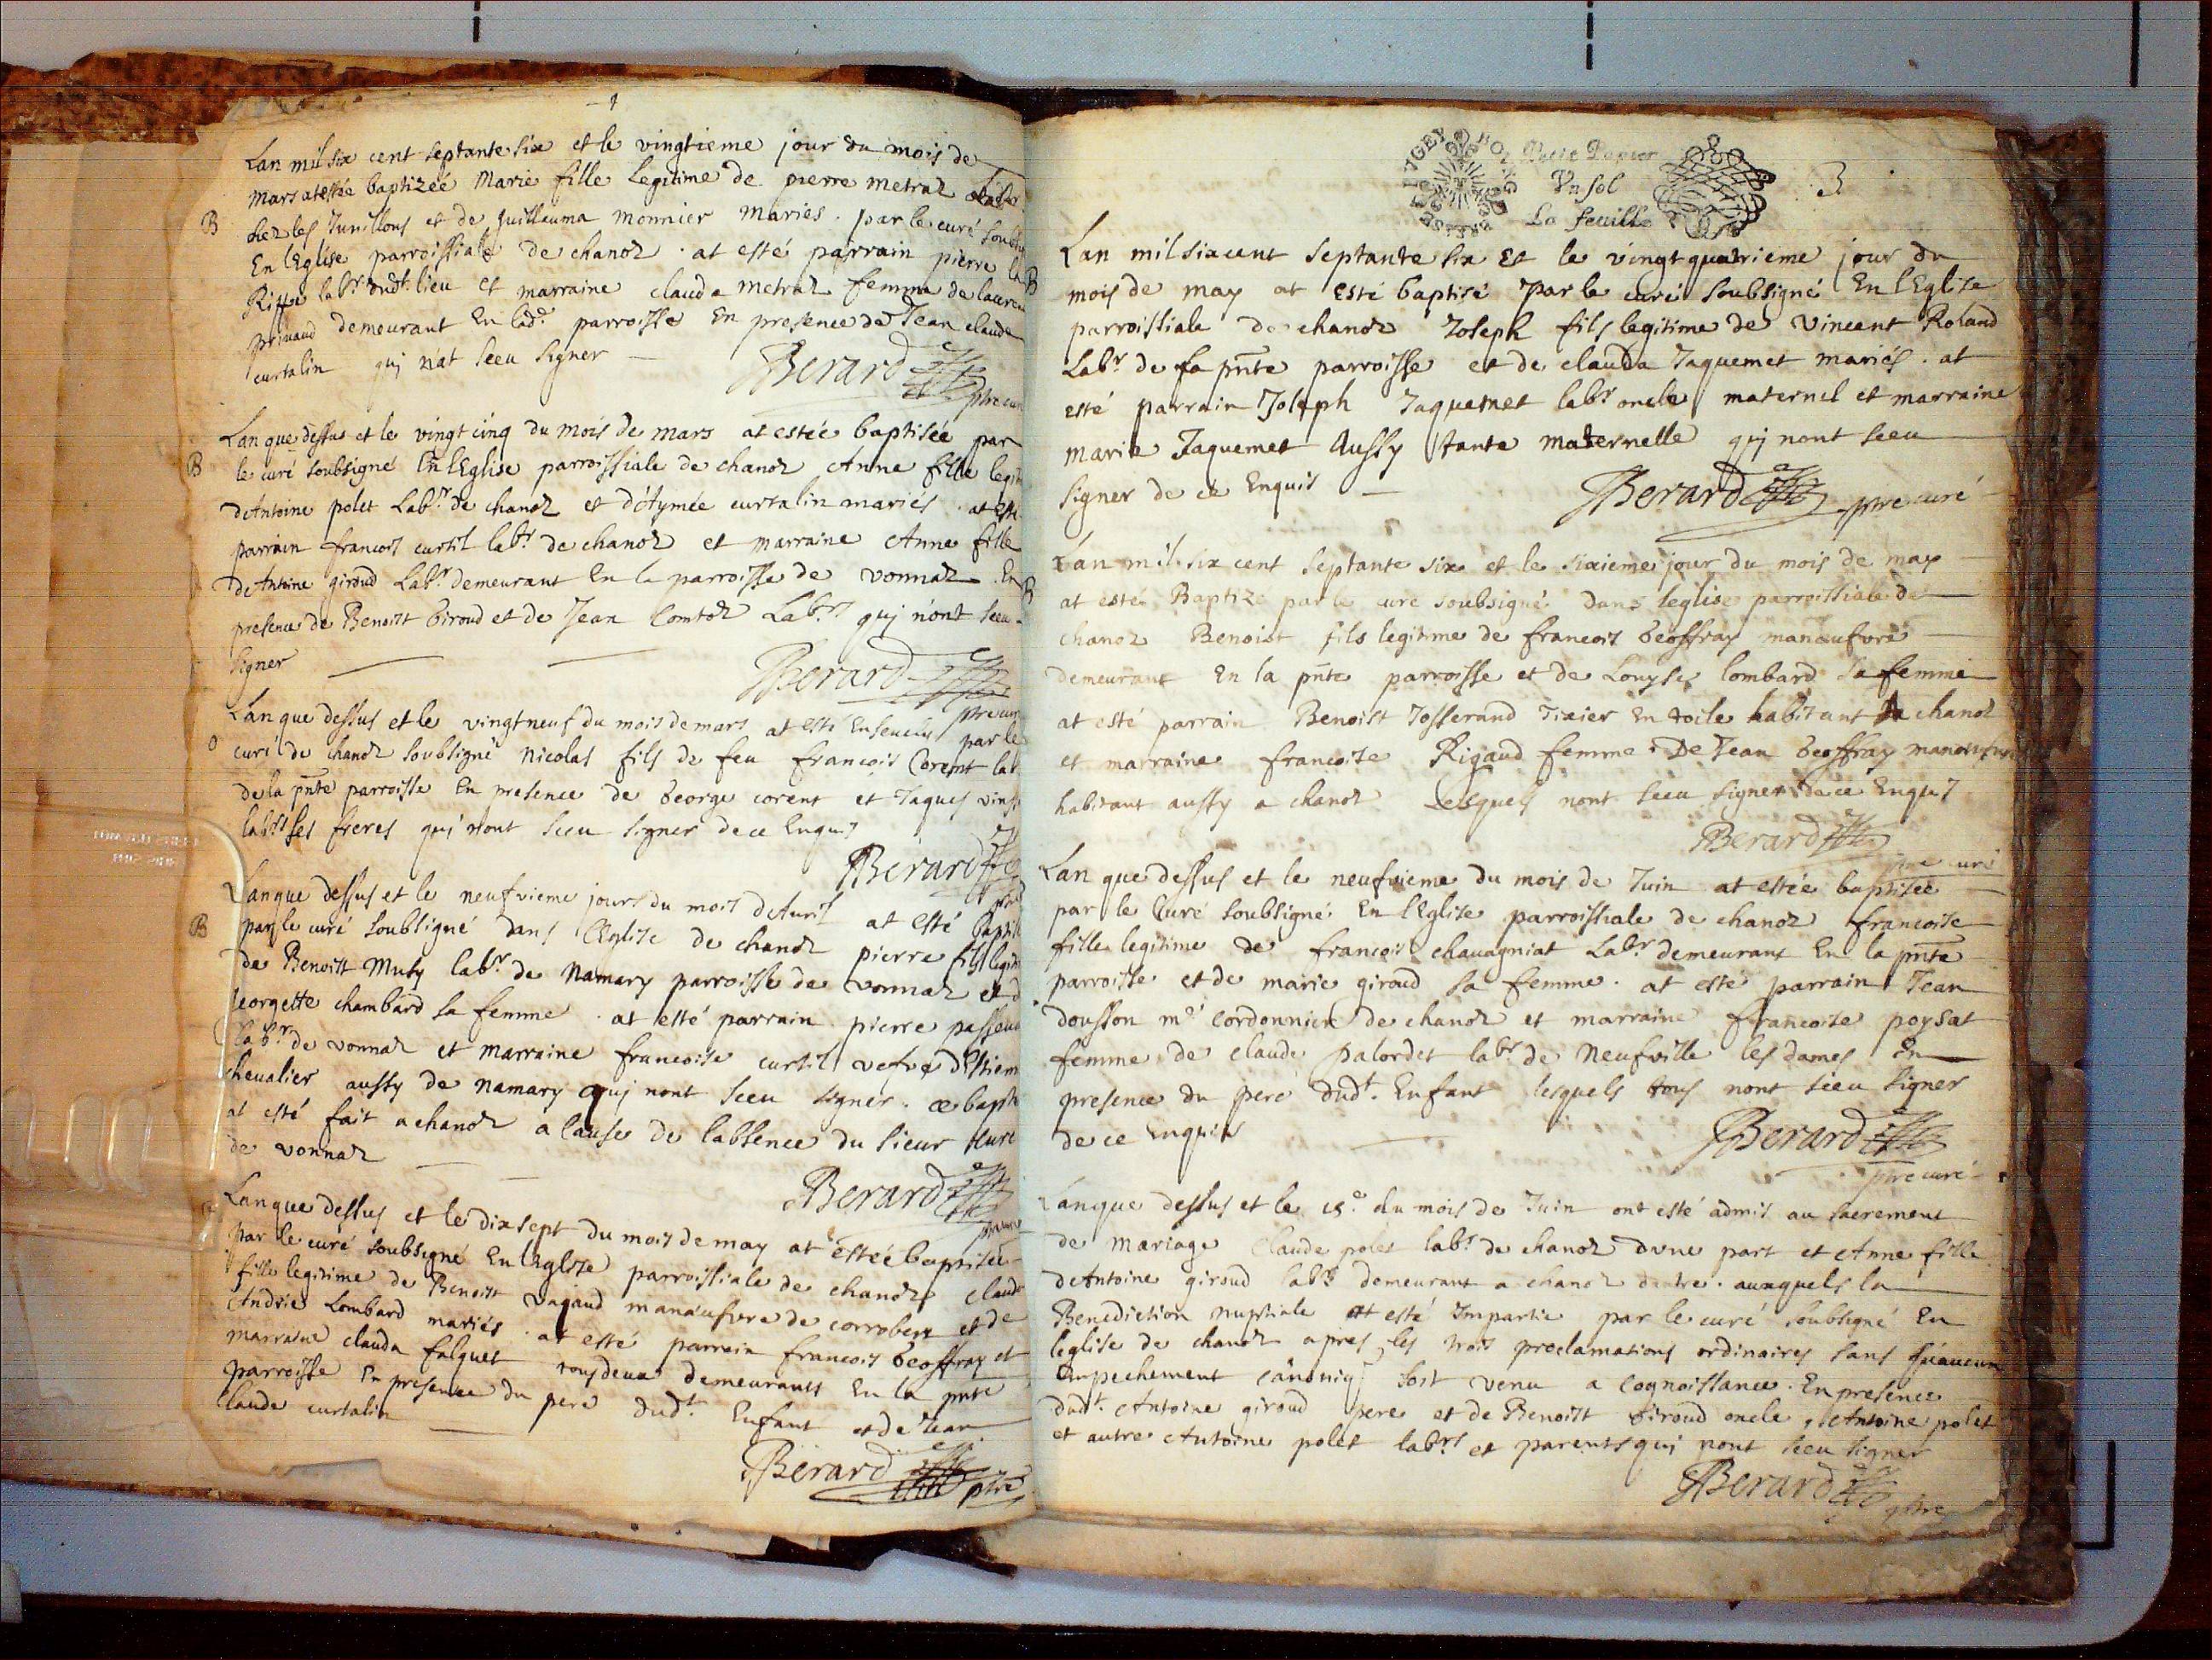 Lan mil six cent septante six et le vingtieme jour du mois de
mars at estée baptizeé Marie fille Legitime de pierre metral
B
chez les Junillons et de guillauma monnier mariés . par le curé soub
En lEglise parroissiale de chanoz . at esté parrain pierre la
Riffe labr. dudt. lieu et marraine clauda metral femme de lauren
privaud demeurant En lade. parroisse En presence de Jean claude
curtalin quj n'at sceu signer
Berard
ptre cur
Lan que dessus et le vingt cinq du mois de mars at estée baptisée par
B
le curé soubsigné En lEglise parroissiale de chanoz Anne fille legit
dAntoine polet Labr. de chanoz et d'Aymée curtalin mariés . at esté
parrain francois curtil labr. de chanoz et marraine Anne fille
dAntoine giroud Labr. demeurant En la parroisse de vonnaz . En
presence de Benoist Giroud et de Jean Comtoz Labrs. quj n'ont sceu
signer
Berard
ptre cur
Lan que dessus et le vingt neuf du mois de mars at esté Ensevely par le
curé de chanoz soubsigné nicolas fils de feu francois Corent lab
de la pnte parroisse En presence de George corent et Jaques
labrs ses freres quj n'ont sceu signer de ce Enquis
Berard
Lan que dessus et le neufvieme jours du mois dAuril at esté baptisé
B
par le curé soubsigné dans lEglise de chanoz pierre fils legiti
de Benoist Muty labr. de Namary parroisse de vonnaz et d
georgette chambard sa femme . at esté parrain pierre
labr. de vonnaz et marraine francoise curtil vefve dEstiem
chevalier aussy de namary quj nont sceu signer . ce bapt
at esté fait a chanoz a cause de labsence du sieur curé
de vonnaz
Berard
Lan que dessus et le dix sept du mois de may at estée baptisée
par le curé soubsigné En lEglise parroissiale de chanoz claud
fille legitime de Benoist vagaud manœufvre de corrobert et de
Andrée Lombard mariés . at esté parrain francois Geoffray et
marraine clauda falquet tous deux demeurants En la pnte
parroisse En presence du pere dudt. Enfant et de Jean
Claude curtalin
Berard
ptre
Petit Papier
Un sol
La feuille
3
Lan mil six cent septante six et le vingt quatrieme jour du
mois de may at esté baptisé par le curé soubsigné En lEglise
B
parroissiale de chanoz Joseph fils legitime de vincent Roland
Labr. de la pnte parroisse et de clauda Jaquemet mariés . at
esté parrain Joseph Jaquemet labr. oncle maternel et marraine
marie Jaquemet Aussy tante maternelle quj nont sceu
signer de ce Enquis
Berard
ptre curé
Lan mil six cent septante six et le sixieme jour du mois de may
B
at esté Baptizé par le curé soubsigné dans leglise parroissiale de
chanoz Benoist fils legitime de francois Geoffray manœufvre
demeurant En la pnte parroisse et de Louyse lombard sa femme
at esté parrain Benoist Josserand Tixier En toile habitant A chanoz
et marraine francoise Rigaud femme De Jean Geoffray manœufvre
habitant aussy a chanoz Lesquels nont sceu signer de ce Enquis
Berard
ptre curé
Lan que dessus et le neufvieme du mois de Juin at estée baptisée
par le Curé soubsigné En lEglise parroissiale de chanoz francoise
fille legitime de francois chavagniat Labr. demeurant En la pnte
parroisse et de marie giroud sa femme . at esté parrain Jean
dousson me. cordonnier de chanoz et marraine francoise poysat
femme de claude palordet labr. de Neufville les dames En
presence du pere dudt. Enfant lesquels tous nont sceu signer
de ce Enquis
Berard
ptre curé
Lan que dessus et le 15e. du mois de Juin ont esté admis au sacrement
de mariage Claude polet labr. de chanoz dune part et Anne fille
dAntoine giroud labr. demeurant a chanoz dautre . auxquels la
Benediction nuptiale at esté Impartie par le curé soubsigné En
leglise de chanoz apres les trois proclamations ordinaires sans quaucun
Empechement canoniq soit venu a cognoissance . En presence
dudt. Antoine giroud pere et de Benoist Giroud oncle , Antoine polet
et autre Antoine polet labrs et parents quj nont sceu signer
Berard
ptre